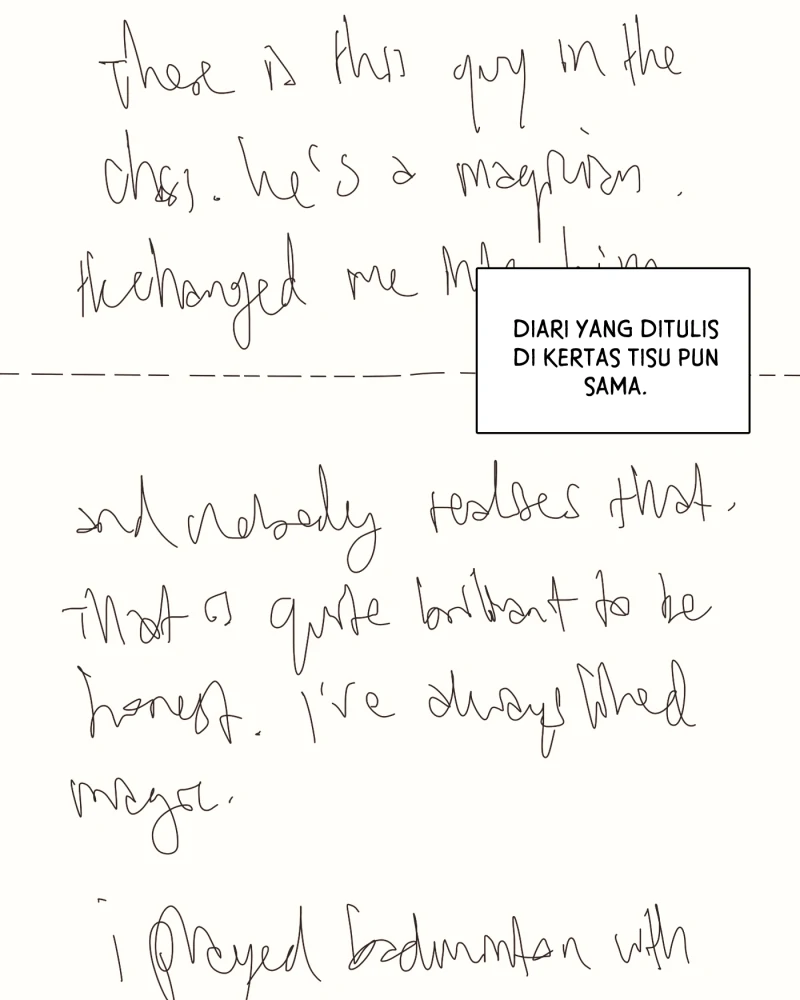 There is this guy in the
class. he's a magician.
He changed me into him
DIARI YANG DITULIS
DI KERTAS TISU PUN
SAMA.
and nobody realises that.
That is quite brilliant to be
honest. i've always liked
magic.
i played badminton with